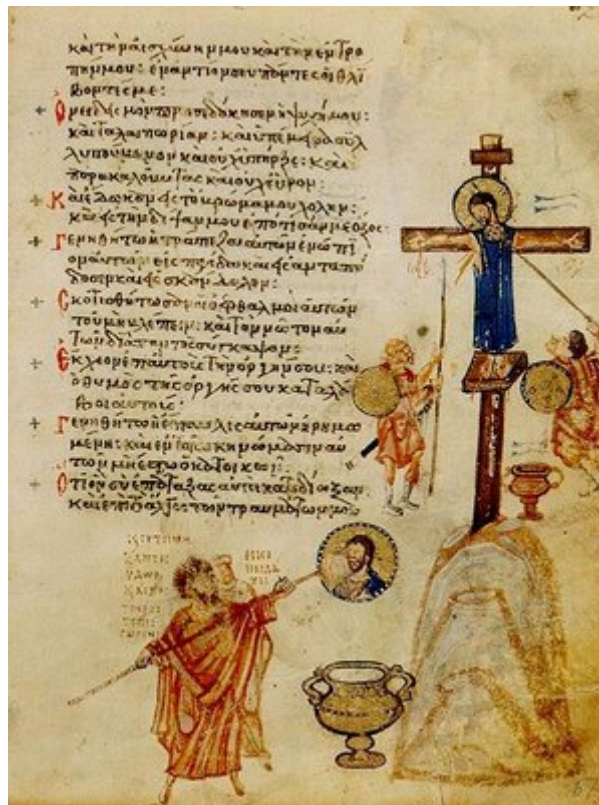 καὶ τὴν αἰσχύνην μου καὶ τὴν ἐντρο
πήν μου: ἐναντίον σου πάντες οἱ θλί
βοντές με:
Ὀνειδισμὸν προσεδόκησεν ἡ ψυχή μου:
καὶ ταλαιπωρίαν: καὶ ὑπέμεινα συλ
λυπούμενον καὶ οὐχ ὑπῆρξε: καὶ
παρακαλοῦντας καὶ οὐχ εὗρον:
Καὶ ἔδωκαν εἰς τὸ βρῶμά μου χολήν:
καὶ εἰς τὴν δίψαν μου ἐπότισάν με ὄξος:
Γενηθήτω ἡ τράπεζα αὐτῶν ἐνώπι
ον αὐτῶν εἰς παγίδα καὶ εἰς ἀνταπό
δοσιν καὶ εἰς σκάνδαλον:
Σκοτισθήτωσαν οἱ ὀφθαλμοὶ αὐτῶν
τοῦ μὴ βλέπειν: καὶ τὸν νῶτον αὐ
τῶν διὰ παντὸς σύγκαμψον:
Ἔκχεον ἐπ' αὐτοὺς τὴν ὀργήν σου: καὶ
ὁ θυμὸς τῆς ὀργῆς σου καταλά
βοι αὐτούς:
Γενηθήτω ἡ ἔπαυλις αὐτῶν ἠρημω
μένη: καὶ ἐν τοῖς σκηνώμασιν αὐ
τῶν μὴ ἔστω ὁ κατοικῶν:
Ὅτι ὃν σὺ ἐπάταξας αὐτοὶ κατεδίωξαν:
καὶ ἐπὶ τὸ ἄλγος τῶν τραυμάτων μου
67